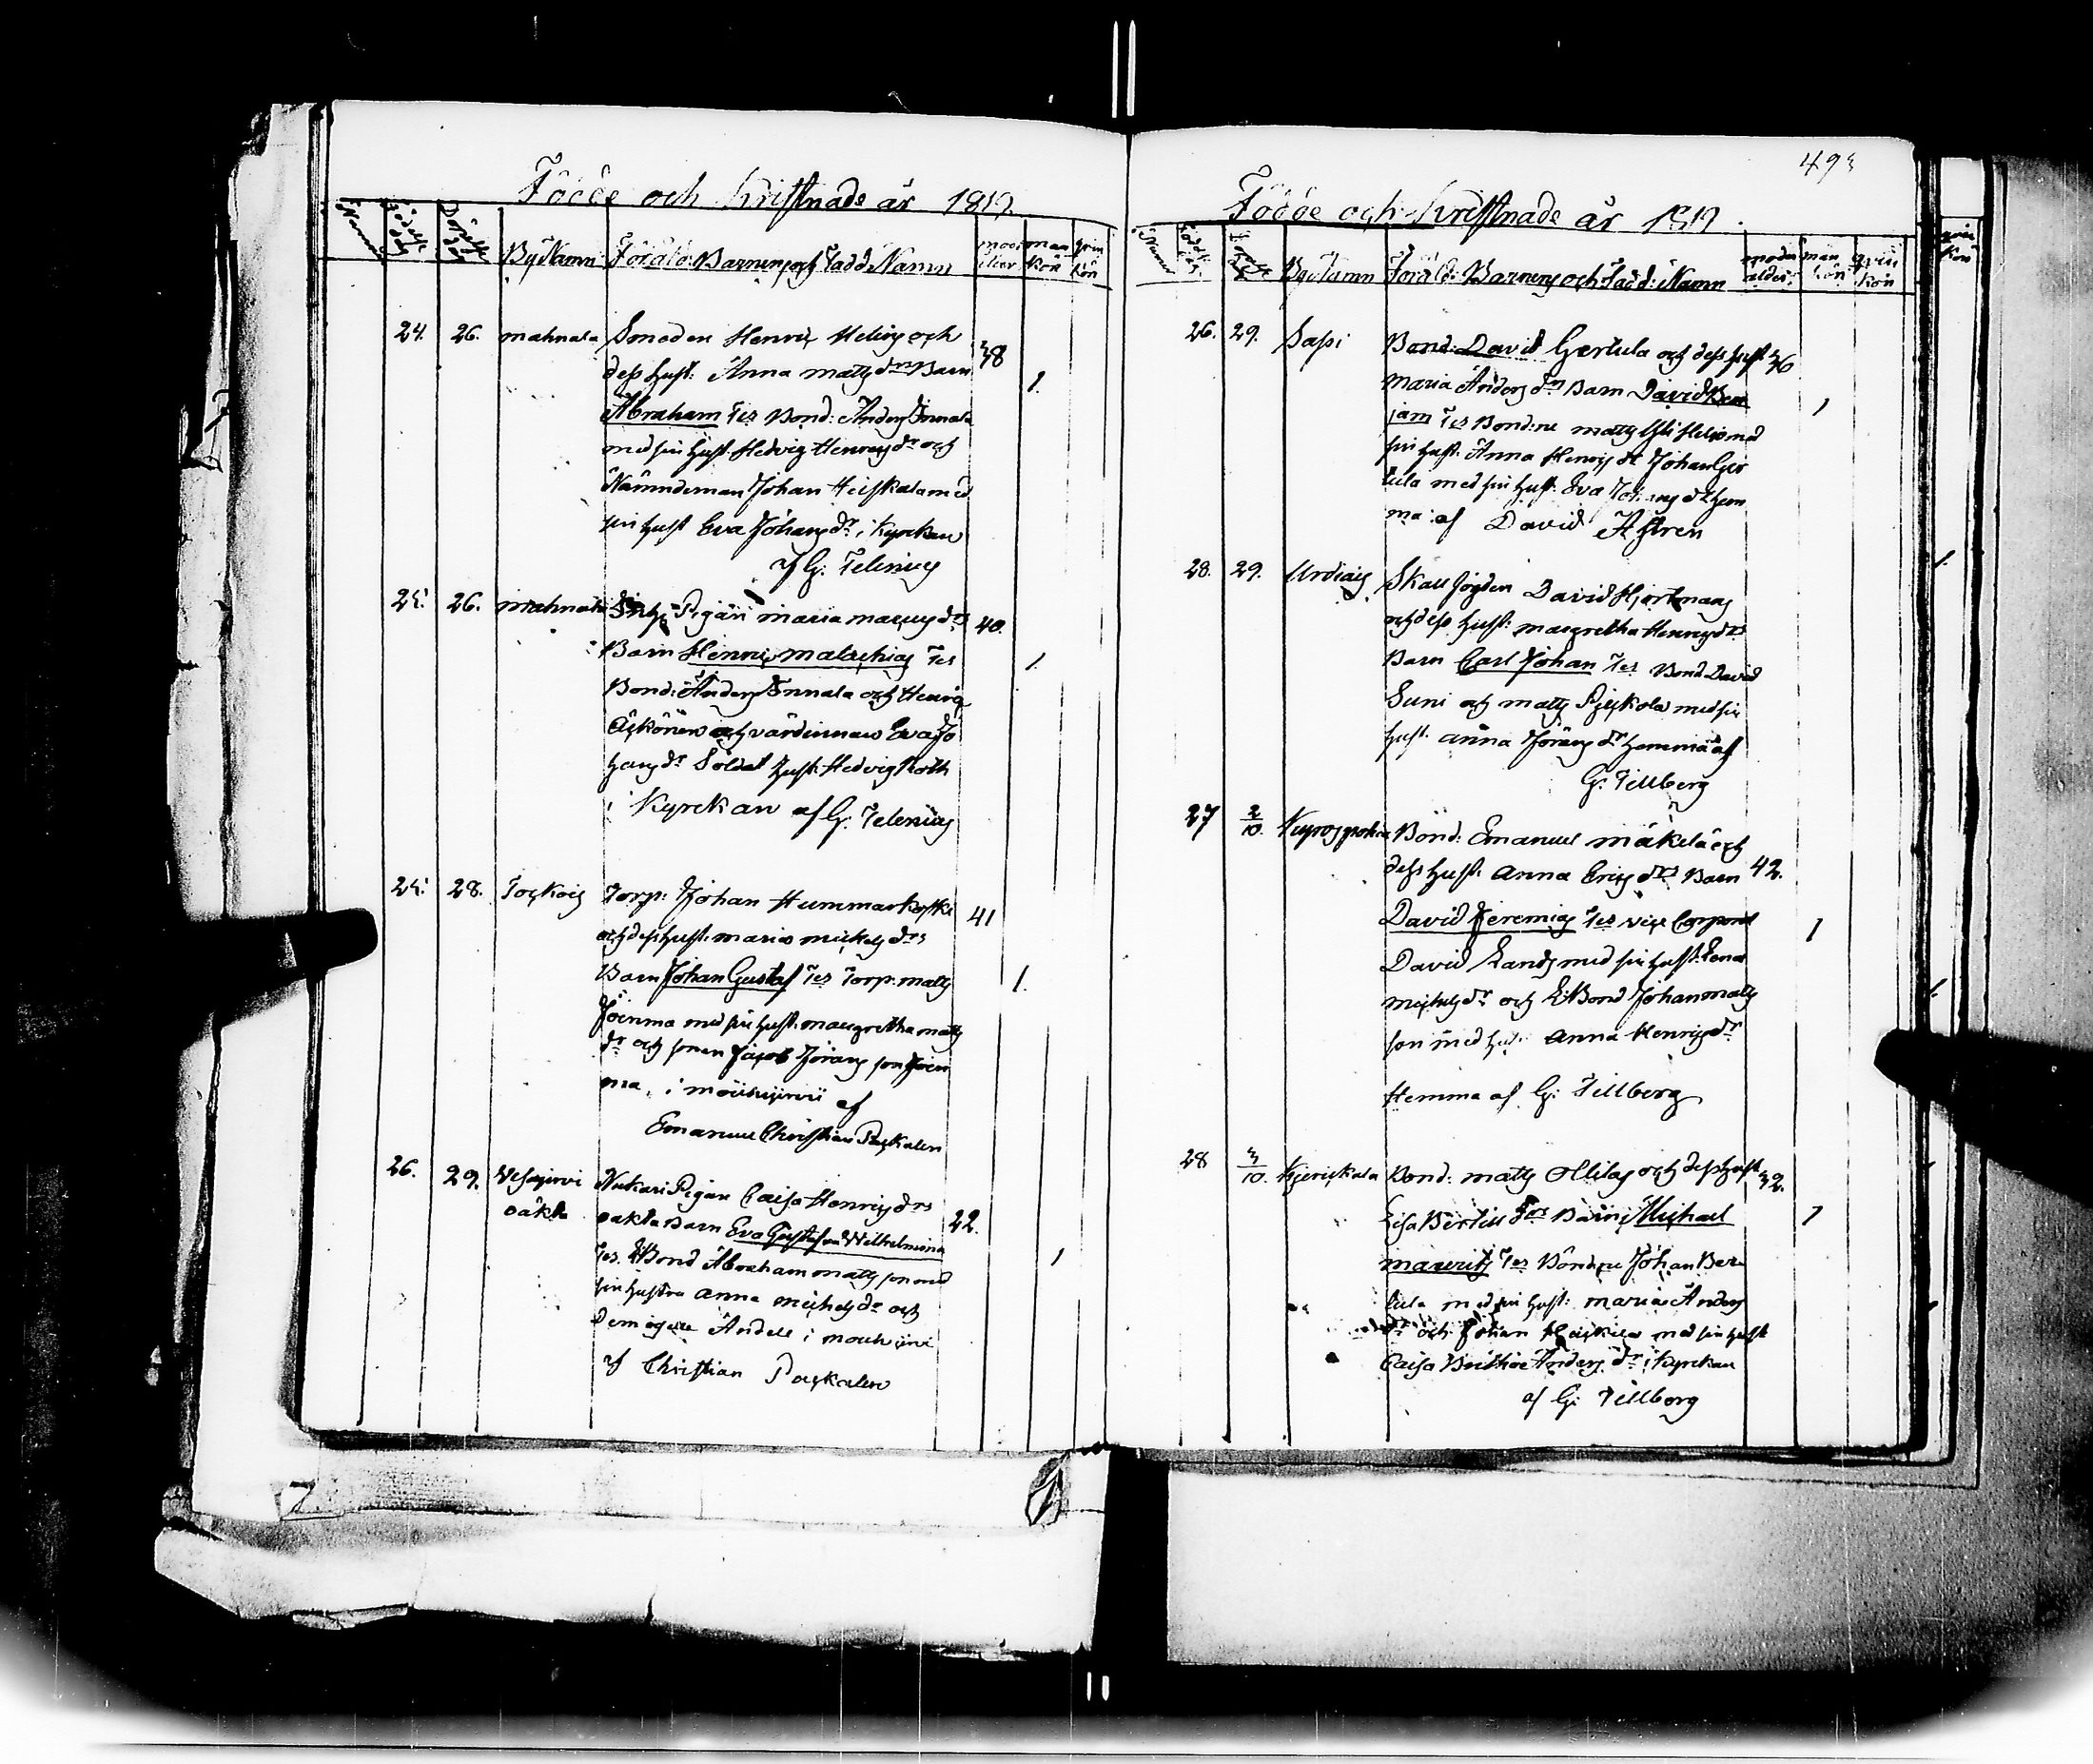 Födde och Kristnade år 1819.
Nummer Födelse dag Döpelse dag By Namn Föräld: Barnens och Fadd: Namn moder ålder man kön qvin kön
24. 26. mahnala Smeden Henric Helin och 38
dess hust: Anna matts dr Barn 1.
Abraham Tes Bond: Anders Innala
med sin hust Hedvig Henrics dr och
Nämndeman Johan Heiskala med
sin hust Eva Johans dr i Kyrckan
af G: Telenius
25. 26. mahnala Pigan maria marcus drs 40.
Barn Henric malachias Tes 1.
Bond: Anders Innala och Henric
och värdinnan Eva Jo
hans dr Soldat hust: Hedvig Roth
i Kyrckan af G: Telenius
25. 28. Torp: Johan Hummarkoski 41
och dess hust: maria mickels drs
Barn Johan Gustaf Tes Torp. matts 1.
med sin hust: margretha matts
dr och sonen Jacob Jörans son
ma, i af
Emanuel Christian Packalen
26. 29. Vesajervi Pigan Caisa Henrics drs 22.
oäkta oäkta Barn Eva Gustafva Wilhelmina 1
Tes. Bond Abraham matts son med
sin hustru anna michels dr och
Andell i
af Christian Packalen
493
Födde och Kristnade år 1819.
Nummer By Namn Föräld: Barnens och Fadd: Namn moder ålder: man kön qvin kön
26. 29. Sasi Bond: David Gertula och dess hust 36
maria Anders drs Barn David Ben
jam Tes Bondene matts med 1
sin hust. Anna Henrics dr Johan Ger
tula med sin hust. Eva dr hem
ma: af David Astren
28. 29. Urdiais David Hjortman
och dess hust: margretha Henrics drs
Barn Carl Johan Tes Bond David 1.
Suni och matts med sin
hust anna Jörans dr hemma af
G: Tillberg
27 2/10. Kyrospohia Bond: Emanuel mäkelä och
dess hust: Anna Erics drs Barn 42.
David Jeremias Tes vice Corporal 1
David med sin hust: Lena
michels dr och Bond Johan matts
son med hust: Anna Henrics dr
Hemma af G: Tillberg
28 3/10. Kierickala Bond: matts Ollilas och dess hust 32.
Lisa Bertill drs Barn Michael 1
mauritz Tes Bönderne Johan Ber
tula med sin hust: maria Anders
dr och Johan Heickila med sin hust
Caisa Anders dr i Kyrckan
af G: Tillberg